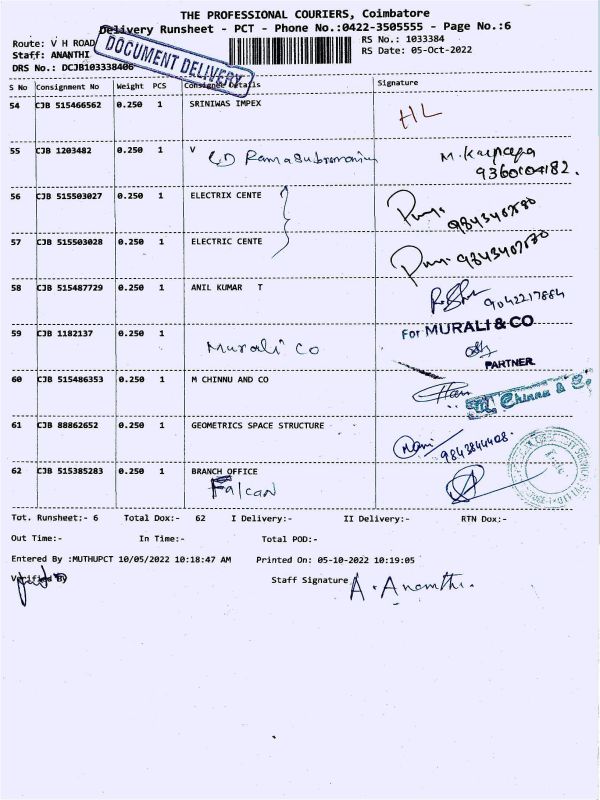 THE PROFESSIONAL COURIERS, Coimbatore
Delivery Runsheet - PCT - Phone No.:0422-3505555 - Page No.:6
Route: V H ROAD
RS No.: 1033384
Staff: ANANTHI
RS Date: 05-Oct-2022
DRS No.: DCJB103338406
DOCUMENT DELIVERY
S No Consignment No Weight PCS Consignee Details Signature
54 CJB 515466562 0.250 1 SRINIWAS IMPEX HL
55 CJB 1203482 0.250 1 V Ramasubramanium
9360104182.
56 CJB 515503027 0.250 1 ELECTRIX CENTE
57 CJB 515503028 0.250 1 ELECTRIC CENTE
58 CJB 515487729 0.250 1 ANIL KUMAR T 9042217864
59 CJB 1182137 0.250 1 Murali Co For MURALI & CO
PARTNER
60 CJB 515486353 0.250 1 M CHINNU AND CO M. Chinnu & Co
61 CJB 88862652 0.250 1 GEOMETRICS SPACE STRUCTURE Mani 9843844408.
62 CJB 515385283 0.250 1 BRANCH OFFICE
Falcan
Tot. Runsheet:- 6 Total Dox:- 62 I Delivery:- II Delivery:- RTN Dox:-
Out Time:- In Time:- Total POD:-
Entered By :MUTHUPCT 10/05/2022 10:18:47 AM Printed On: 05-10-2022 10:19:05
Verified By Staff Signature A. Ananthi.